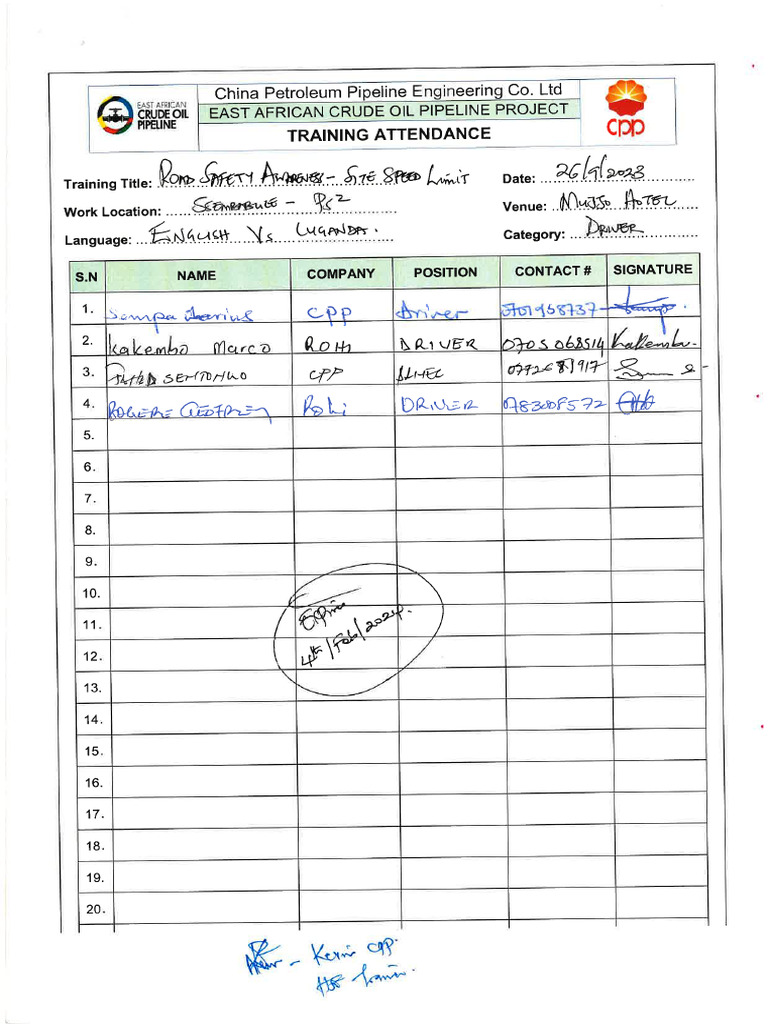 EAST AFRICAN
CRUDE OIL
PIPELINE
China Petroleum Pipeline Engineering Co. Ltd
EAST AFRICAN CRUDE OIL PIPELINE PROJECT
TRAINING ATTENDANCE
CPP
Training Title: ROAD SAFETY AWARENESS - SITE SPEED LIMIT Date: 26/9/2023
Work Location: SSEMBABULE - PS2 Venue: MUJJO HOTEL
Language: ENGLISH Vs LUGANDA. Category: DRIVER
S.N NAME COMPANY POSITION CONTACT # SIGNATURE
1. Sempa CPP driver 0701958737
2. Kakembo Marco ROHI DRIVER 0705068514 Kakembo
3. SEMTONGO CPP
4. ROGERE GEOFREY Rohi DRIVER 0783008572
5.
6.
7.
8.
9.
10.
11.
12.
13.
14.
15.
16.
17.
18.
19.
20.
Expire
4th/Feb/2024.
- Kevin CPP.